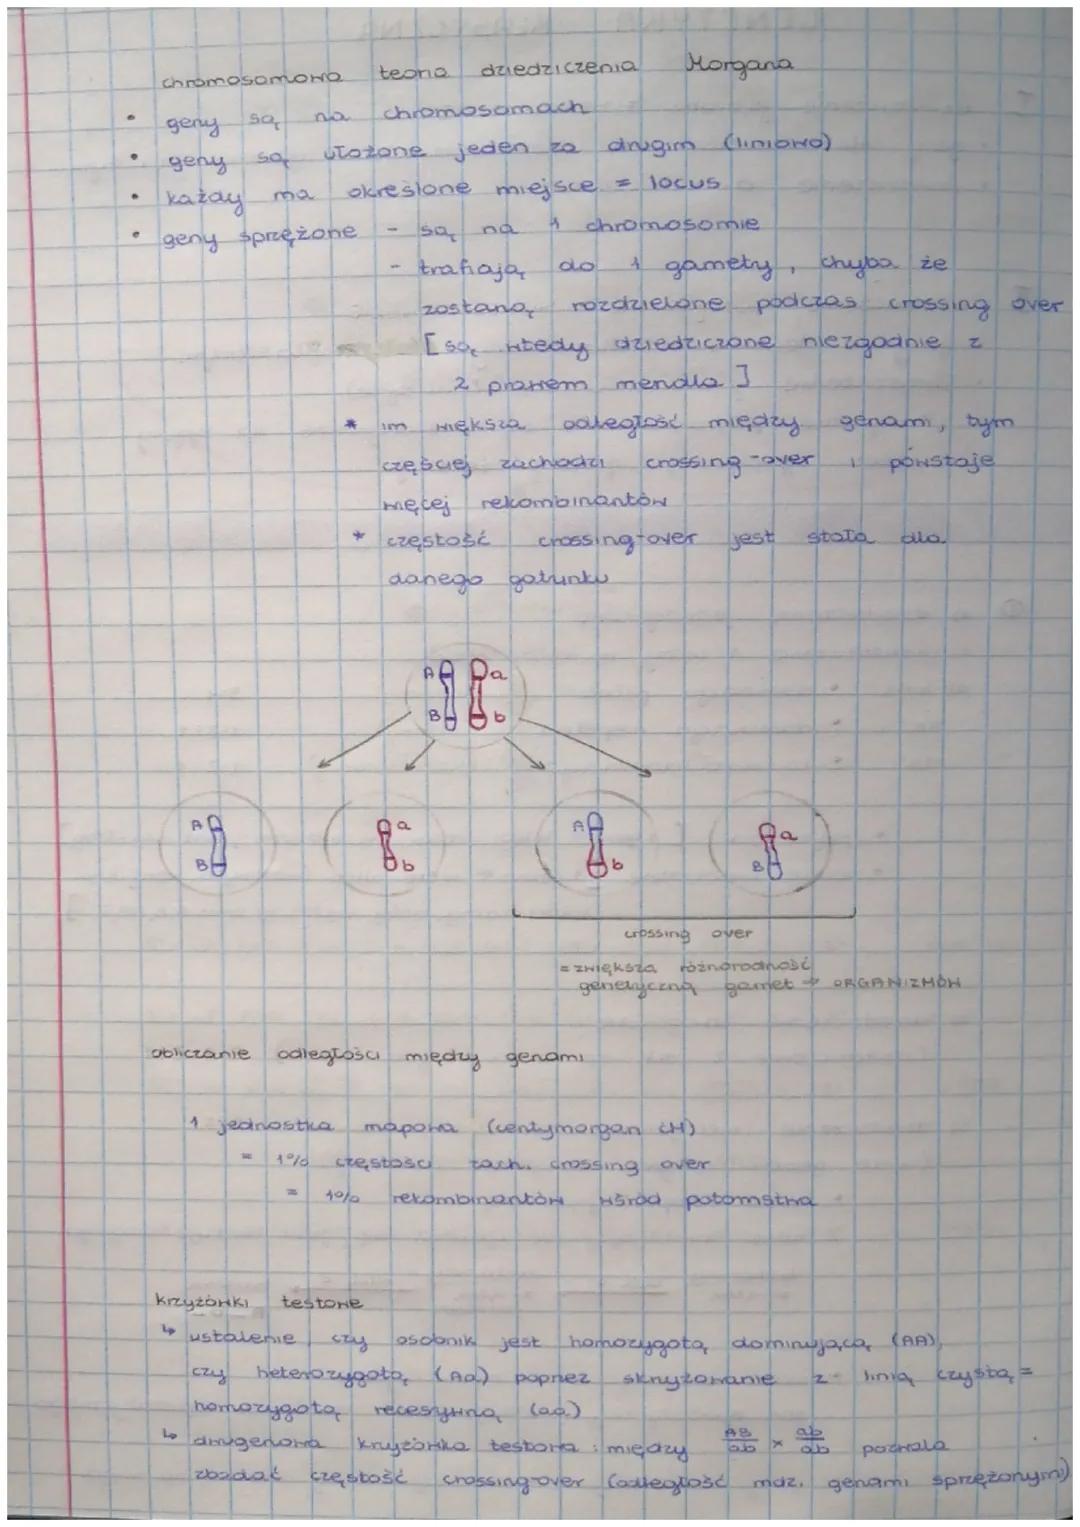 chromosomowa teoria dziedziczenia Morgana
• geny są na chromosomach
• geny są ułożone jeden za drugim (liniowo)
• każdy ma określone miejsce = locus
• geny sprzężone - są na 1 chromosomie
- trafiają do 1 gamety, chyba że
zostaną rozdzielone podczas crossing over
[są wtedy dziedziczone niezgodnie z
2 prawem mendla]
* im większa odległość między genami, tym
częściej zachodzi crossing-over i powstaje
więcej rekombinantów
* częstość crossing-over jest stała dla
danego gatunku
A a
B b
A a A a
B b b B
crossing over
= zwiększa różnorodność
genetyczną gamet → ORGANIZMÓW
obliczanie odległości między genami
1 jednostka mapowa (centymorgan cM)
= 1% częstości zach. crossing over
= 1% rekombinantów wśród potomstwa
krzyżówki testowe
↳ ustalenie, czy osobnik jest homozygotą dominującą (AA),
czy heterozygotą (Aa) poprzez skrzyżowanie z linią czystą =
homozygotą recesywną (aa)
↳ dwugenowa krzyżówka testowa: między AB/ab × ab/ab pozwala
zbadać częstość crossing-over (odległość mdz. genami sprzężonymi)